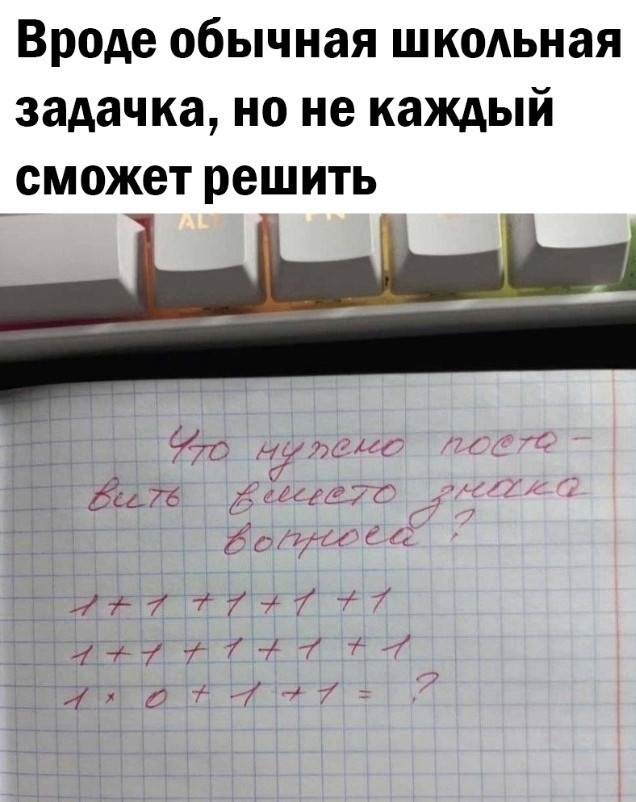 Вроде обычная школьная
задачка, но не каждый
сможет решить
ALT
FN
Что нужно поста-
вить вместо знака
вопроса?
1+1+1+1+1
1+1+1+1+1
1×0+1+1=?